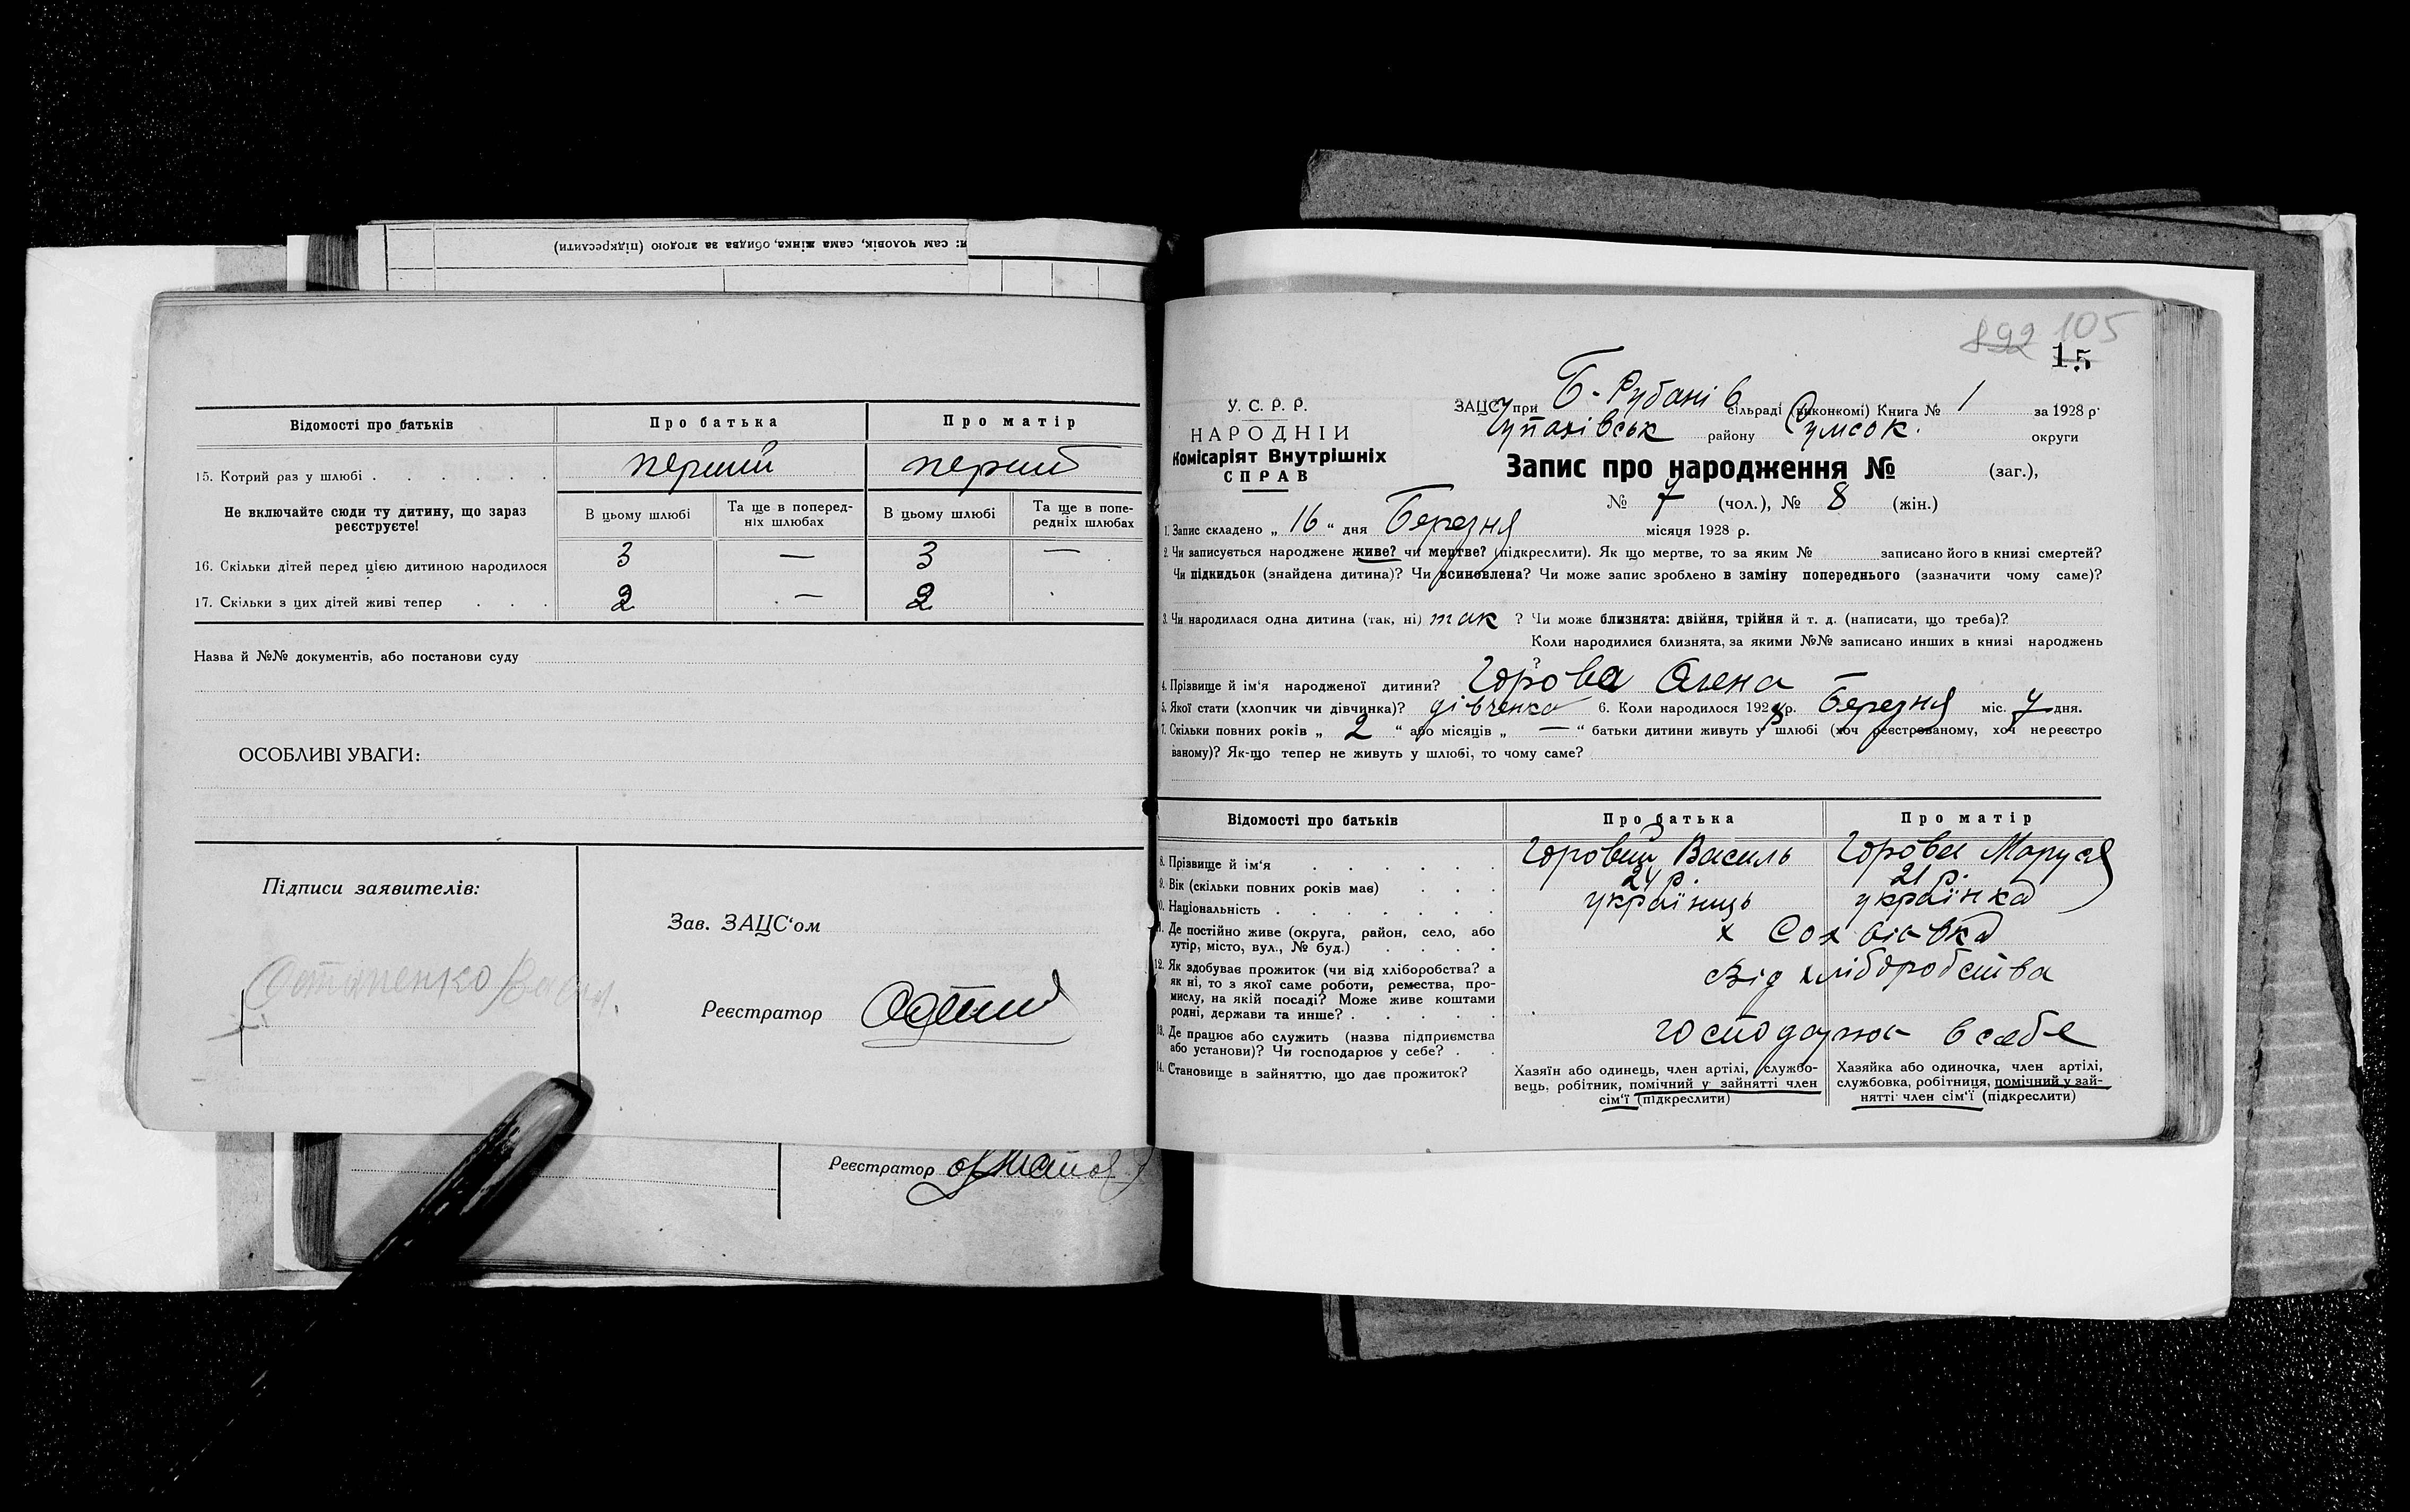 я: сам чоловік, сама жінка, обидва за згодою (підкреслити)
Відомості про батьків Про батька Про матір
15. Котрий раз у шлюбі . . . . . . перший перший
Не включайте сюди ту дитину, що зараз реєструєте!
В цьому шлюбі Та ще в поперед-ніх шлюбах В цьому шлюбі Та ще в попе-редніх шлюбах
16. Скільки дітей перед цією дитиною народилося 3 — 3 —
17. Скільки з цих дітей живі тепер . . . 2 — 2
Назва й №№ документів, або постанови суду
ОСОБЛИВІ УВАГИ:
Підписи заявителів:
Зав. ЗАЦС'ом
Остапенко
Реєстратор
Реєстратор
892 105
15
У. С. Р. Р.
НАРОДНІЙ
Комісаріят Внутрішніх
СПРАВ
ЗАЦС при Б-Рубанів сільраді (виконкомі) Книга № 1 за 1928 р.
району Сумськ. округи
Запис про народження № (заг.),
№ 7 (чол.), № 8 (жін.)
1. Запис складено „ 16 “ дня Березня місяця 1928 р.
2. Чи записується народжене живе? чи мертве? (підкреслити). Як що мертве, то за яким № записано його в книзі смертей?
Чи підкидьок (знайдена дитина)? Чи всиновлена? Чи може запис зроблено в заміну попереднього (зазначити чому саме)?
3. Чи народилася одна дитина (так, ні) так ? Чи може близнята: двійня, трійня й т. д. (написати, що треба)?
Коли народилися близнята, за якими №№ записано инших в книзі народжень
?
4. Прізвище й ім'я народженої дитини? Горова Олена
5. Якої стати (хлопчик чи дівчинка)? дівченка 6. Коли народилося 1928 р. Березня міс. 7 дня.
7. Скільки повних років „ 2 “ або місяців „ — “ батьки дитини живуть у шлюбі (хоч реєстрованому, хоч нереєстро
ваному)? Як-що тепер не живуть у шлюбі, то чому саме?
Відомості про батьків Про батька Про матір
8. Прізвище й ім'я . . . . . . Горовий Василь Горова Маруся
9. Вік (скільки повних років має) . . . 24 р. 21 р.
10. Національність . . . . . . . українць українка
11. Де постійно живе (округа, район, село, або
хутір, місто, вул., № буд.) . . . .
12. Як здобуває прожиток (чи від хліборобства? а
як ні, то з якої саме роботи, ремества, про-
мислу, на якій посаді? Може живе коштами
родні, держави та инше? . . . . .
Від хліборобства
13. Де працює або служить (назва підприємства
або установи)? Чи господарює у себе? . .
в себе
14. Становище в зайняттю, що дає прожиток?
Хазяїн або одинець, член артілі, службо-
вець, робітник, помічний у зайнятті член
сім'ї (підкреслити)
Хазяйка або одиночка, член артілі,
службовка, робітниця, помічний у зай-
нятті член сім'ї (підкреслити)